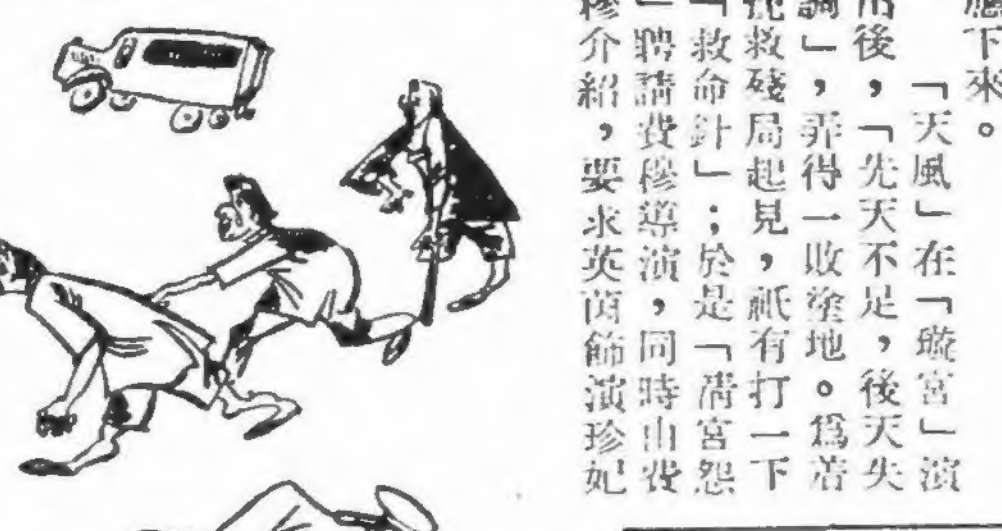 應下來。
「天風」在「璇宮」演
出後，「先天不足，後天失
調」，弄得一敗塗地。爲着
挽救殘局起見，祇有打一下
「救命針」；於是「清宮怨
」聘請費穆導演，同時由費
穆介紹，要求英茵飾演珍妃